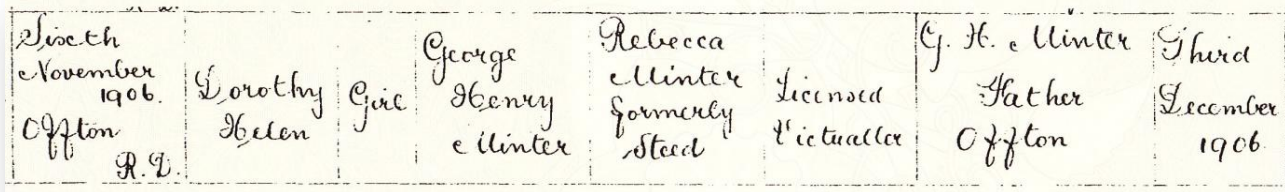 Sixth
November
1906.
Offton
R.D.
Dorothy
Helen
Girl
George
Henry
Minter
Rebecca
Minter
formerly
Steed
Licensed
Victualler
G. H. Minter
Father
Offton
Third
December
1906